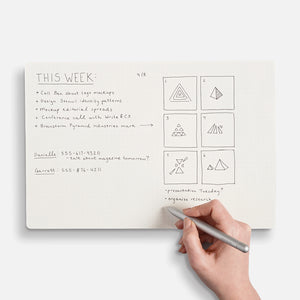 THIS WEEK:
4/8
• Call Ben about logo mockups
• Design Second identity patterns
• Mockup editorial spreads
• Conference call with Write & Co
• Brainstorm Pyramid industries mark →
Danielle: 555-617-9320
- talk about magazine tomorrow?
Garrett: 555-876-4211
1
2
3
4
5
6
"presentation Tuesday"
• organize research